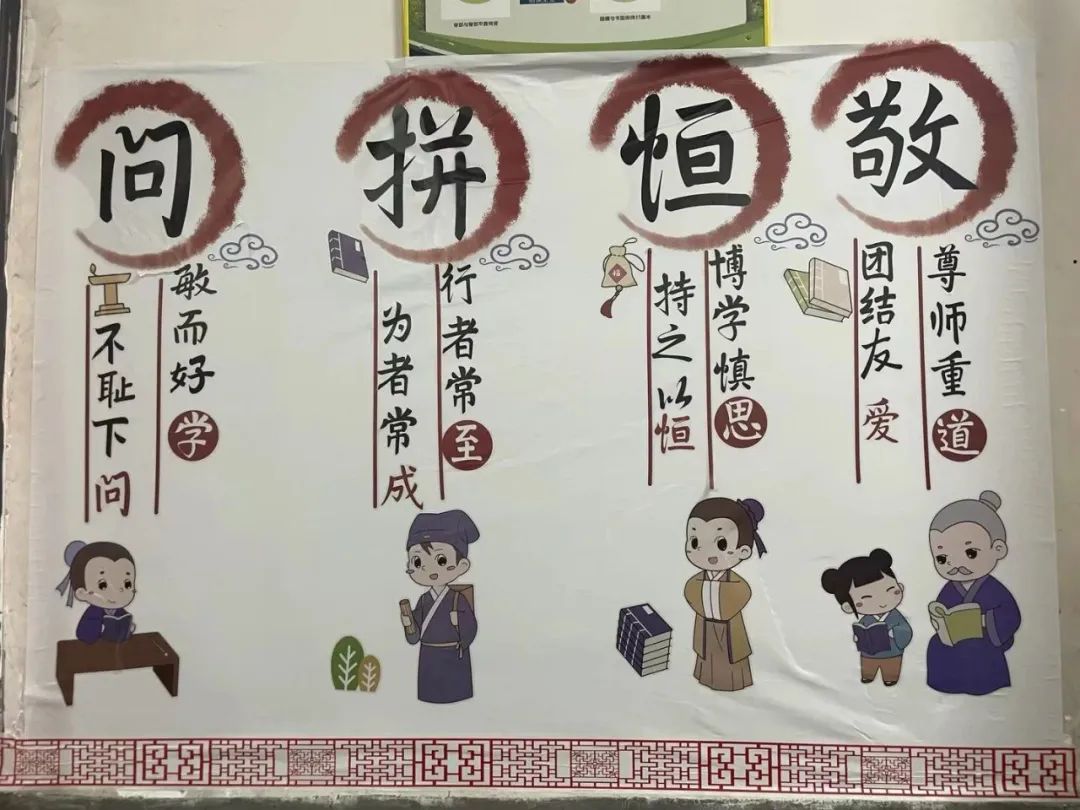 敬
尊师重道
团结友爱
恒
博学慎思
持之以恒
福
拼
行者常至
为者常成
问
敏而好学
不耻下问